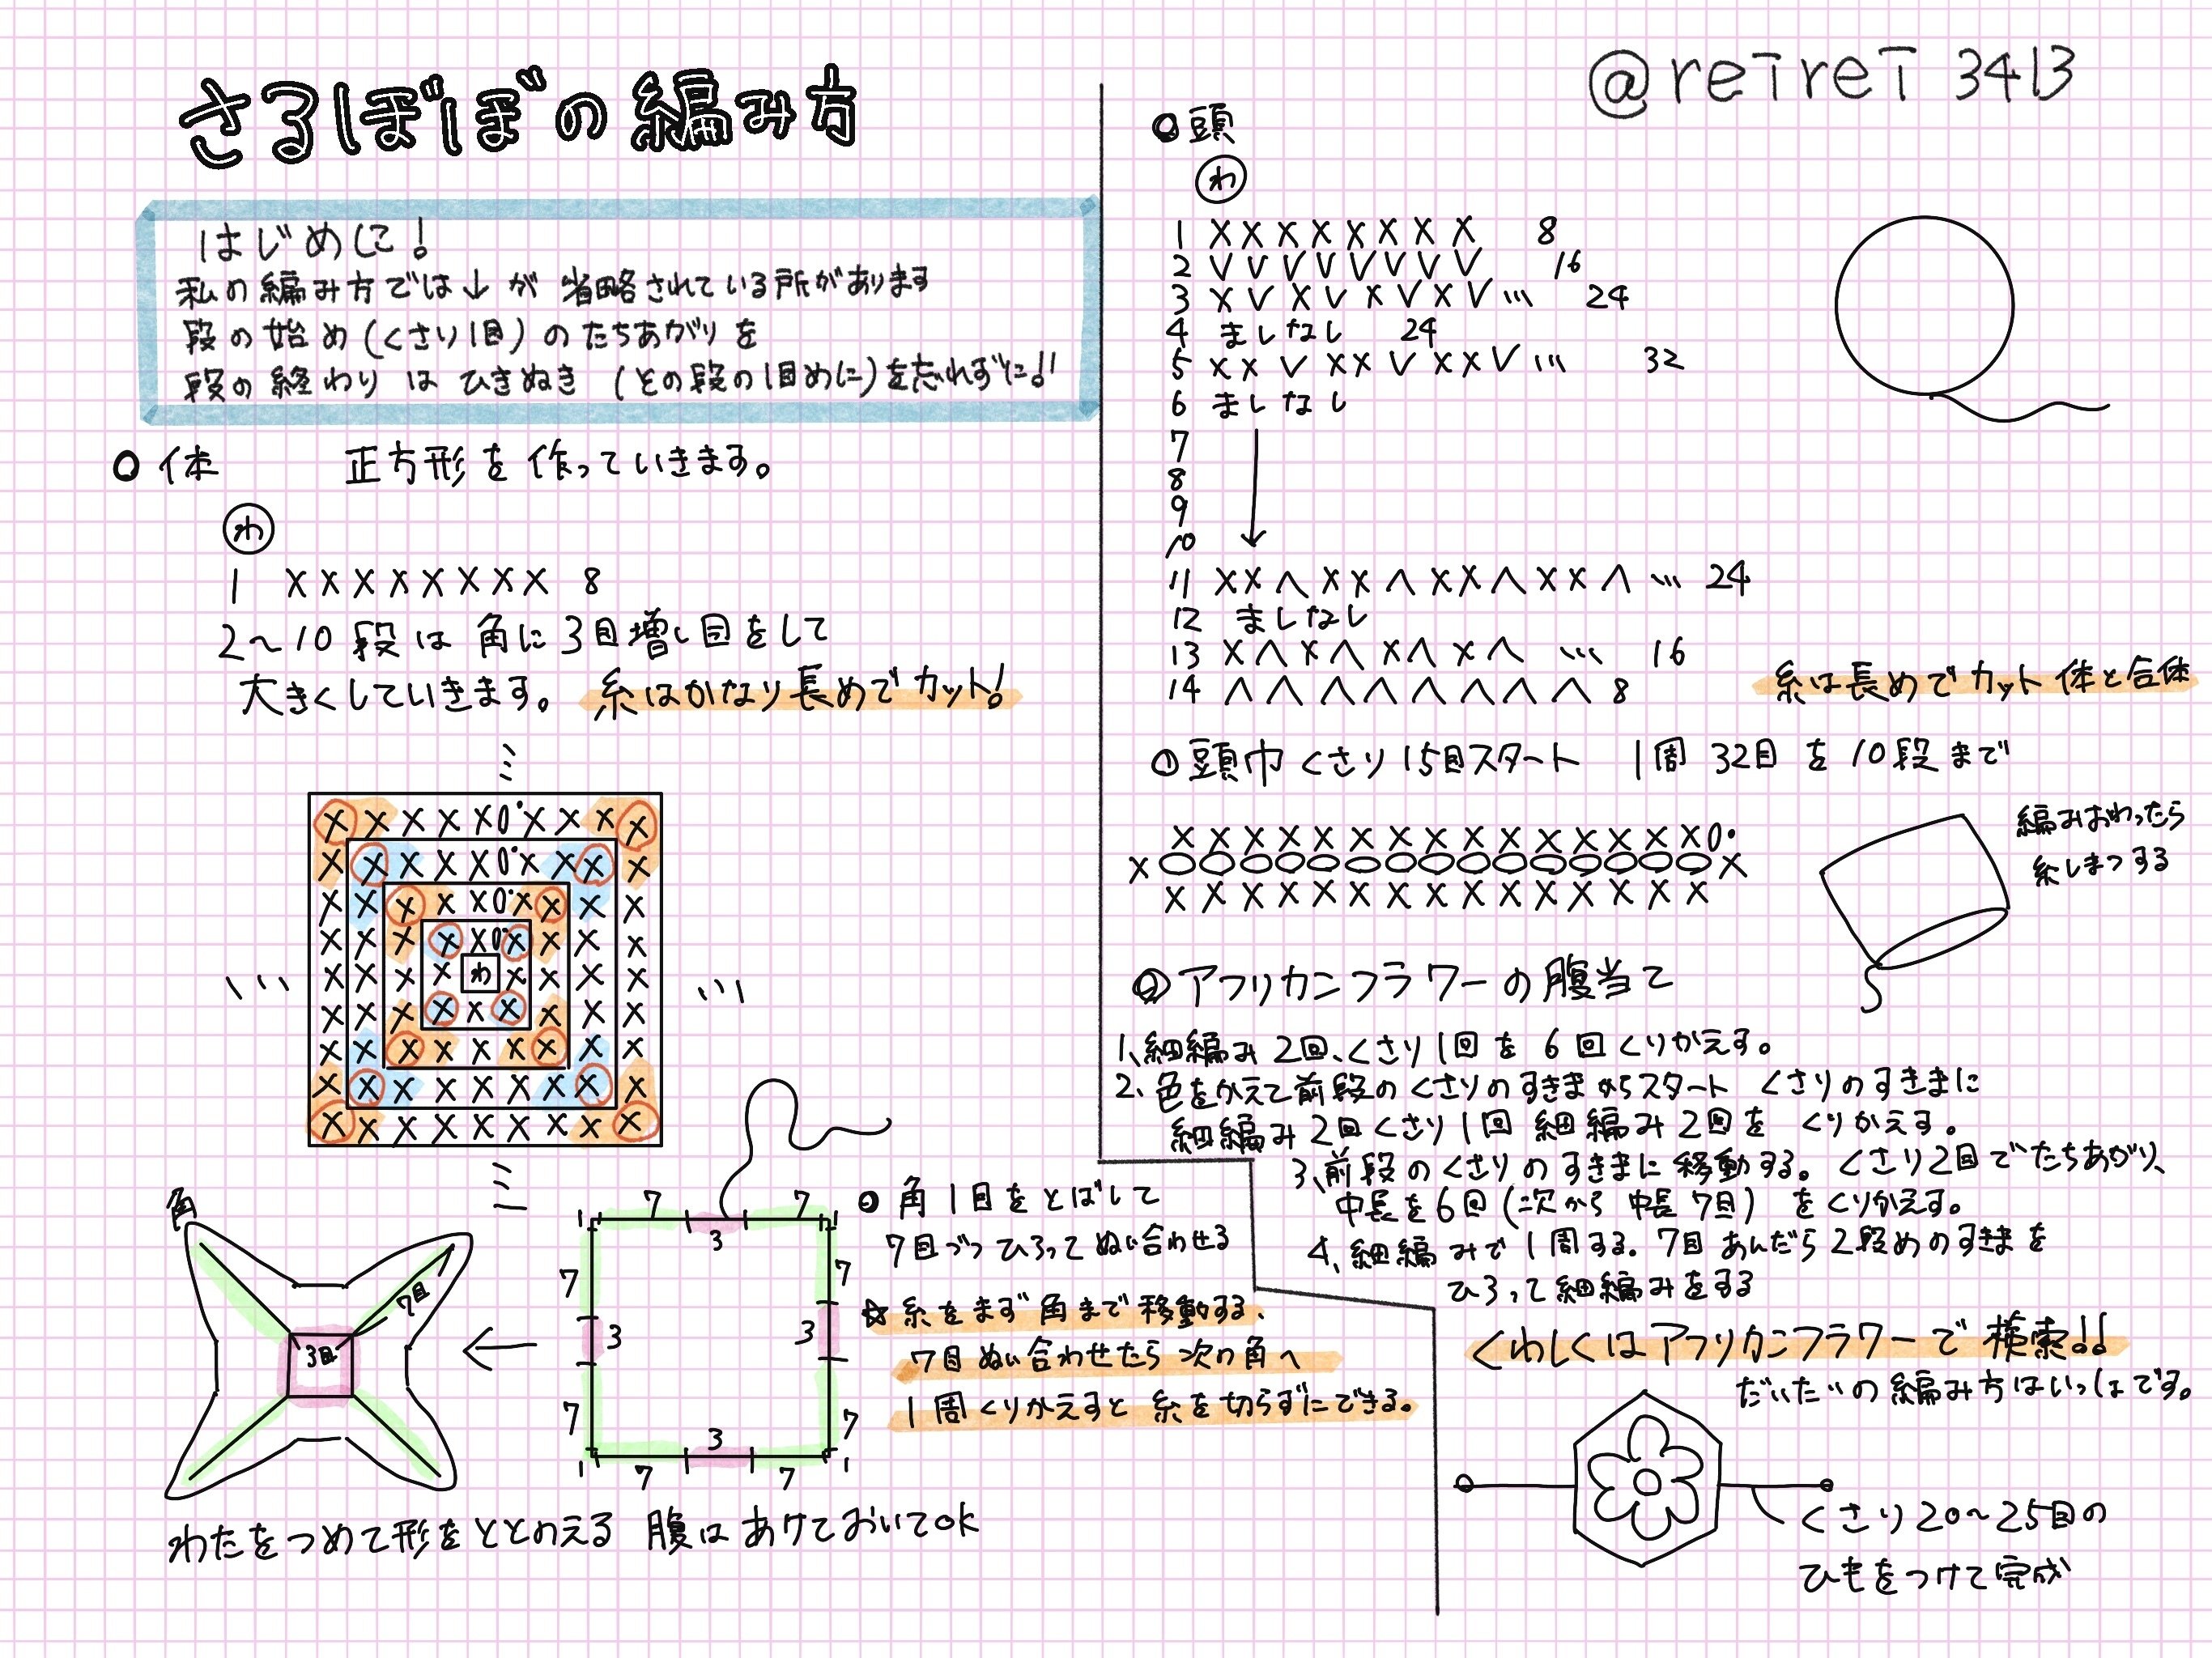 さるぼぼの編み方
@reTreT 3413
はじめに!
私の編み方では↓が 省略されている所があります
段の始め(くさり1目)のたちあがりを
段の終わりは ひきぬき (その段の1目めに)を忘れずに!!
体 正方形を作っていきます。
わ
1 XXXXXXXX 8
2〜10段は角に3目増し目をして
大きくしていきます。 糸はかなり長めでカット!
X X X X X 0・ X X X X
X X X X X 0・ X X X X
X X X X X 0・ X X X X
X X X X X 0・ X X X X
X X X X わ X X X X
X X X X X X X X X
X X X X X X X X X
X X X X X X X X X
X X X X X X X X X
角
7目
3目
1 7 3 7 1
7 7
3 3
7 7
1 7 3 7 1
角1目をとばして
7目づつひろってぬい合わせる
☆糸をまず角まで移動する、
7目ぬい合わせたら次の角へ
1周くりかえすと糸を切らずにできる。
わたをつめて形をととのえる 腹はあけておいてOK
頭
わ
1 XXXXXXXX 8
2 VVVVVVVV 16
3 XVXVXVXV… 24
4 ましなし 24
5 XXVXXVXXV… 32
6 ましなし
7
8
9
10
11 XX∧XX∧XX∧XX∧… 24
12 ましなし
13 X∧X∧X∧X∧ … 16
14 ∧∧∧∧∧∧∧∧ 8
糸は長めでカット 体と合体
頭巾 くさり15目スタート 1周32目を10段まで
X X X X X X X X X X X X X X X 0・
X 0 0 0 0 0 0 0 0 0 0 0 0 0 0 0 X
X X X X X X X X X X X X X X X
編みおわったら
糸しまつする
アフリカンフラワーの腹当て
1、細編み2回、くさり1回を6回くりかえす。
2、色をかえて前段のくさりのすきまからスタート くさりのすきまに
細編み2回くさり1回細編み2回をくりかえす。
3、前段のくさりのすきまに移動する。くさり2目でたちあがり、
中長を6回(次から中長7目)をくりかえす。
4、細編みで1周する。7目あんだら2段めのすきまを
ひろって細編みをする
くわしくはアフリカンフラワーで検索!!
だいたいの編み方はいっしょです。
くさり20〜25目の
ひもをつけて完成